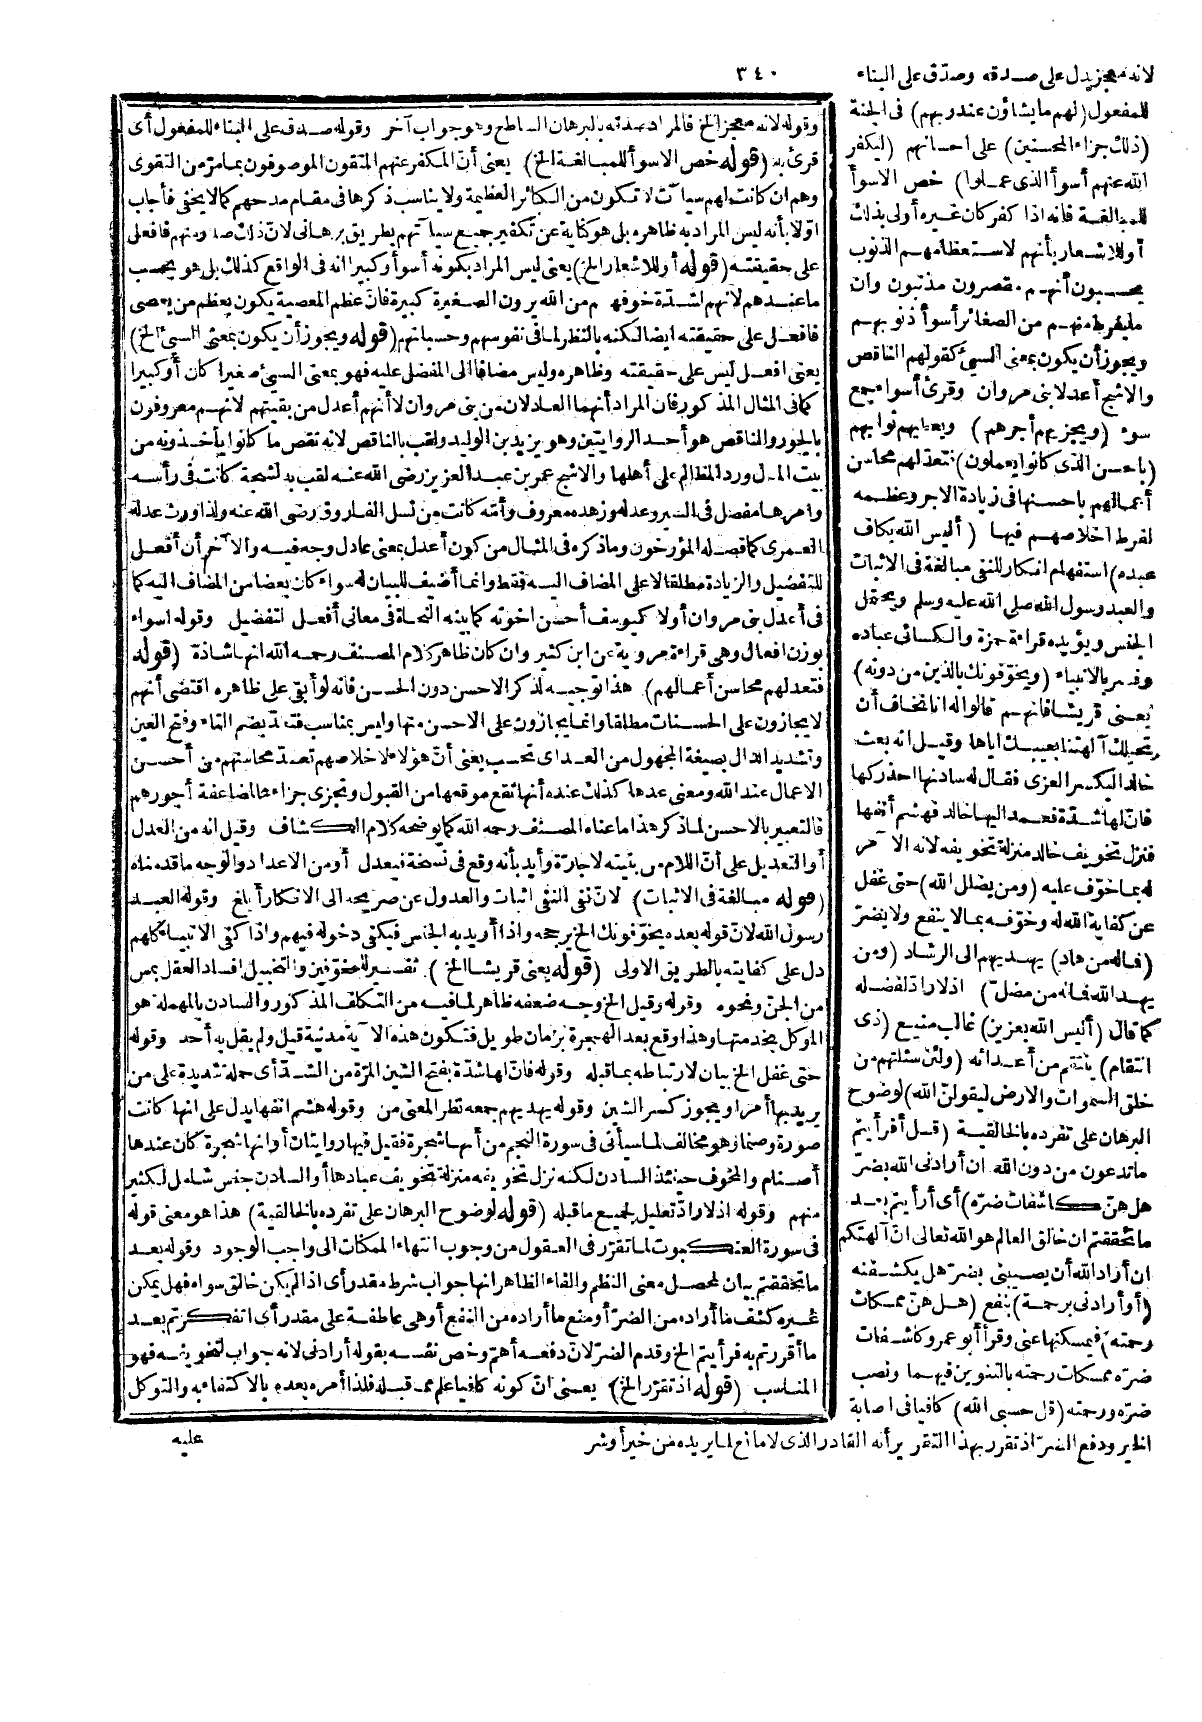 ٣٤٠
لانه معجز يدل على صدقه وصدّق على البناء
للمفعول (لهم ما يشاؤن عند ربهم) فى الجنة
(ذلك جزاء المحسنين) على احسانهم (ليكفر
الله عنهم أسوأ الذى عملوا) خص الاسوأ
للمبالغة فانه اذا كفر كان غيره أولى بذلك
أو للاشعار بأنهم لاستعظامهم الذنوب
يحسبون أنهم مقصرون مذنبون وان
ما يفرط منهم من الصغائر أسوأ ذنوبهم
ويجوز أن يكون بمعنى السيئ كقولهم الناقص
والاشج أعدلا بنى مروان وقرئ أسواء جمع
سوء (ويجزيهم أجرهم) ويعطيهم ثوابهم
(باحسن الذى كانوا يعملون) فتعد لهم محاسن
أعمالهم باحسنها فى زيادة الاجر وعظمه
لفرط اخلاصهم فيها (أليس الله بكاف
عبده) استفهام انكار للنفى مبالغة فى الاثبات
والعبد رسول الله صلى الله عليه وسلم ويحتمل
الجنس ويؤيده قراءة حمزة والكسائى عباده
وفسر بالانبياء (ويخوّفونك بالذين من دونه)
يعنى قريشا فانهم قالوا له انا نخاف أن
تخبلك آلهتنا بعيبك اياها وقيل انه بعث
خالدا ليكسر العزى فقال له سادنها احذركها
فانّ لها شدّة فعمد اليها خالد فهشم أنفها
فنزل تخويف خالد منزلة تخويفه لانه الآمر
له بما خوّف عليه (ومن يضلل الله) حتى غفل
عن كفاية الله له وخوّفه بما لا ينفع ولا يضرّ
(فماله من هاد) يهديهم الى الرشاد (ومن
يهد الله فماله من مضلّ) اذ لا رادّ لفضله
كما قال (أليس الله بعزيز) غالب منيع (ذى
انتقام) ينتقم من أعدائه (ولئن سئلتهم من
خلق السموات والارض ليقولنّ الله) لوضوح
البرهان على تفرده بالخالقية (قل أفرأيتم
ما تدعون من دون الله ان أرادنى الله بضرّ
هل هنّ كاشفات ضرّه) أى أرأيتم بعد
ما تحققتم ان خالق العالم هو الله تعالى انّ آلهتكم
ان أراد الله أن يصيبنى بضرّ هل يكشفنه
(أو أرادنى برحمة) بنفع (هل هنّ ممسكات
رحمته) فيمسكنها عنى وقرأ أبو عمرو كاشفات
ضرّه ممسكات رحمته بالتنوين فيهما ونصب
ضرّه ورحمته (قل حسبى الله) كافيا فى اصابة
الخير ودفع الضرّ اذ تقرر بهذا التقرير أنه القادر الذى لا مانع لما يريده من خير أو شر
وقوله لانه معجز الخ فالمراد صدقه بالبرهان الساطع وهو جواب آخر وقوله صدق على البناء للمفعول أى
قرئ به (قوله خص الاسوأ للمبالغة الخ) يعنى أنّ المكفر عنهم المتقون الموصوفون بما مرّ من التقوى
وهم ان كانت لهم سيآت لا تكون من الكبائر العظيمة ولا يناسب ذكرها فى مقام مدحهم كما لا يخفى فأجاب
اوّلا بأنه ليس المراد به ظاهره بل هو كناية عن تكفير جميع سيآتهم بطريق برهانى لانّ ذلك صدر منهم فافعل
على حقيقته (قوله أو للاشعار الخ) يعنى ليس المراد بكونه أسوأ وكبيرا انه فى الواقع كذلك بل هو بحسب
ما عندهم لانهم لشدّة خوفهم من الله يرون الصغيرة كبيرة فانّ عظم المعصية يكون بعظم من يعصى
فافعل على حقيقته ايضا لكنه بالنظر لما فى نفوسهم وحسبانهم (قوله ويجوز أن يكون بمعنى السيئ الخ)
يعنى افعل ليس على حقيقته وظاهره وليس مضافا الى المفضل عليه فهو بمعنى السيئ صغيرا كان أو كبيرا
كما فى المثال المذكور فان المراد أنهما العادلان من بنى مروان لا أنهم أعدل من بقيتهم لانهم معروفون
بالجور والناقص هو أحد الروايتين وهو يزيد بن الوليد ولقب بالناقص لانه نقص ما كانوا يأخذونه من
بيت المال ورد المظالم على أهلها والاشج عمر بن عبد العزيز رضى الله عنه لقب به لشجة كانت فى رأسه
وامرهما مفصل فى السير وعدله وزهده معروف وأمّه كانت من نسل الفاروق رضى الله عنه ولذا ورث عدله
العمرى كما قصله المؤرخون وما ذكره فى المثال من كون أعدل بمعنى عادل وجه فيه والآخر أن أفعل
للتفضيل والزيادة مطلقا لا على المضاف اليه فقط وانما أضيف للبيان له سواء كان بعضا من المضاف اليه كما
فى أعدل بنى مروان أولا كيوسف أحسن اخوته كما بينه النحاة فى معانى أفعل لتفضيل وقوله اسواء
بوزن افعال وهى قراءة مروية عن ابن كثير وان كان ظاهر كلام المصنف رحمه الله انها شاذة (قوله
فتعد لهم محاسن أعمالهم) هذا توجيه لذكر الاحسن دون الحسن فانه لو أبقى على ظاهره اقتضى أنهم
لا يجازون على الحسنات مطلقا وانما يجازون على الاحسن منها وليس بمناسب فتعدّ بضم التاء وفتح العين
وتشديد الدال بصيغة المجهول من العد أى تحسب يعنى أنّ هؤلاء لاخلاصهم تعد محاسنهم من أحسن
الاعمال عند الله ومعنى عدها كذلك عنده أنها تقع موقعها من القبول وتجزى جزاءها لمضاعفة أجورهم
فالتعبير بالاحسن لما ذكر هذا ما عناه المصنف رحمه الله كما يوضحه كلام الكشاف وقيل انه من العدل
أو التعديل على أنّ اللام من بنيته لا جارّة وأيد بأنه وقع فى نسخة فيعدل أو من الاعداد والوجه ما قدمناه
(قوله مبالغة فى الاثبات) لانّ نفى النفى اثبات والعدول عن صريحه الى الانكار أبلغ وقوله العبد
رسول الله لانّ قوله بعده يخوّفونك الخ يرجحه واذا أريد به الجنس فيكفى دخوله فيهم واذا كفى الانبياء كلهم
دل على كفايته بالطريق الاولى (قوله يعنى قريشا الخ) تفسير للمخوّفين والتخبيل افساد العقل بمس
من الجنّ ونحوه وقوله وقيل الخ وجه ضعفه ظاهر لما فيه من التكلف المذكور والسادن بالمهملة هو
الموكل بخدمتها وهذا وقع بعد الهجرة بزمان طويل فتكون هذه الآية مدنية قيل ولم يقل به أحد وقوله
حتى غفل الخ بيان لارتباطه بما قبله وقوله فانّ لها شدّة بفتح الشين المرّة من الشدّ أى حملة شديدة على من
يريد بها أمرا ويجوز كسر الشين وقوله يهديهم جمعه نظر المعنى من وقوله هشم انفها يدل على انها كانت
صورة وصنما وهو مخالف لما سيأتى فى سورة النجم من أنها شجرة فقيل فيها روايتان أو انها شجرة كان عندها
أصنام والمخوف حينئذ السادن لكنه نزل تخويفه منزلة تخويف عبادها أو السادن جنس شامل لكثير
منهم وقوله اذ لا رادّ تعليل لجميع ما قبله (قوله لوضوح البرهان على تفرده بالخالقية) هذا هو معنى قوله
فى سورة العنكبوت لما تقرّر فى العقول من وجوب انتهاء الممكنات الى واجب الوجود وقوله بعد
ما تحققتم بيان لمحصل معنى النظم والفاء الظاهر انها جواب شرط مقدر أى اذا لم يكن خالق سواه فهل يمكن
غيره كشف ما أراده من الضرّ أو منع ما أراده من النفع أو هى عاطفة على مقدر أى اتفكرتم بعد
ما أقررتم به فرأيتم الخ وقدم الضرّ لانّ دفعه أهمّ وخص نفسه بقوله أرادنى لانه جواب لتخويفه فهو
المناسب (قوله اذ تقرّر الخ) يعنى انّ كونه كافيا علم مما قبله فلذا أمره بعده بالاكتفاء به والتوكل
عليه